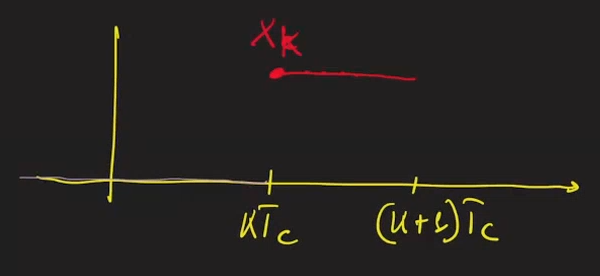 XK
KTc (K+1)Tc